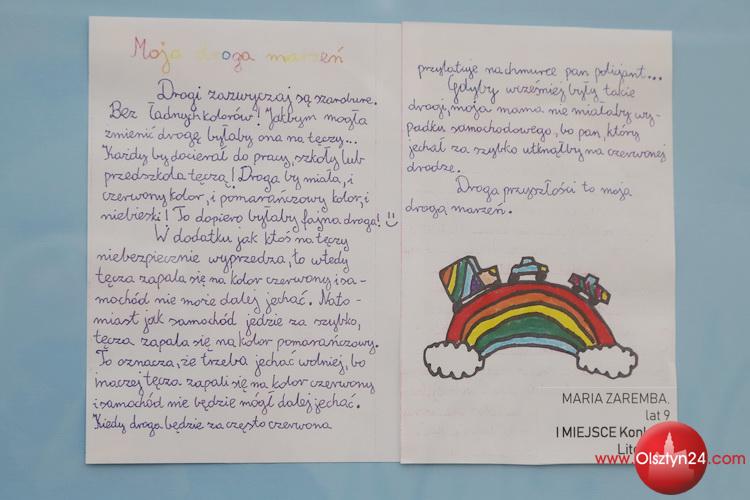 Moja droga marzeń
Drogi zazwyczaj są szarobure.
Bez ładnych kolorów! Jakbym mogła
zmienić drogę byłaby ona na tęczy...
Każdy by docierał do pracy, szkoły lub
przedszkola tęczą! Droga by miała, i
czerwony kolor, i pomarańczowy kolor, i
niebieski! To dopiero byłaby fajna droga! :)
W dodatku jak ktoś na tęczy
niebezpiecznie wyprzedza, to wtedy
tęcza zapala się na kolor czerwony i sa-
mochód nie może dalej jechać. Nato-
miast jak samochód jedzie za szybko,
tęcza zapala się na kolor pomarańczowy.
To oznacza, że trzeba jechać wolniej, bo
inaczej tęcza zapali się na kolor czerwony
i samochód nie będzie mógł dalej jechać.
Kiedy droga będzie za często czerwona
przylatuje na chmurce pan policjant...
Gdyby wcześniej były takie
drogi, moja mama nie miałaby wy-
padku samochodowego, bo pan, który
jechał za szybko utknąłby na czerwonej
drodze.
Droga przyszłości to moja
droga marzeń.
MARIA ZAREMBA,
lat 9
I MIEJSCE Kon
Lit
www.Olsztyn24.com